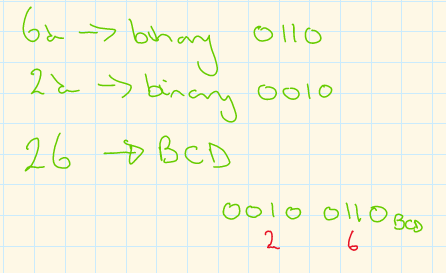 6 in -> binary 0110
2 in -> binary 0010
26 -> BCD
0010 0110 BCD
2 6